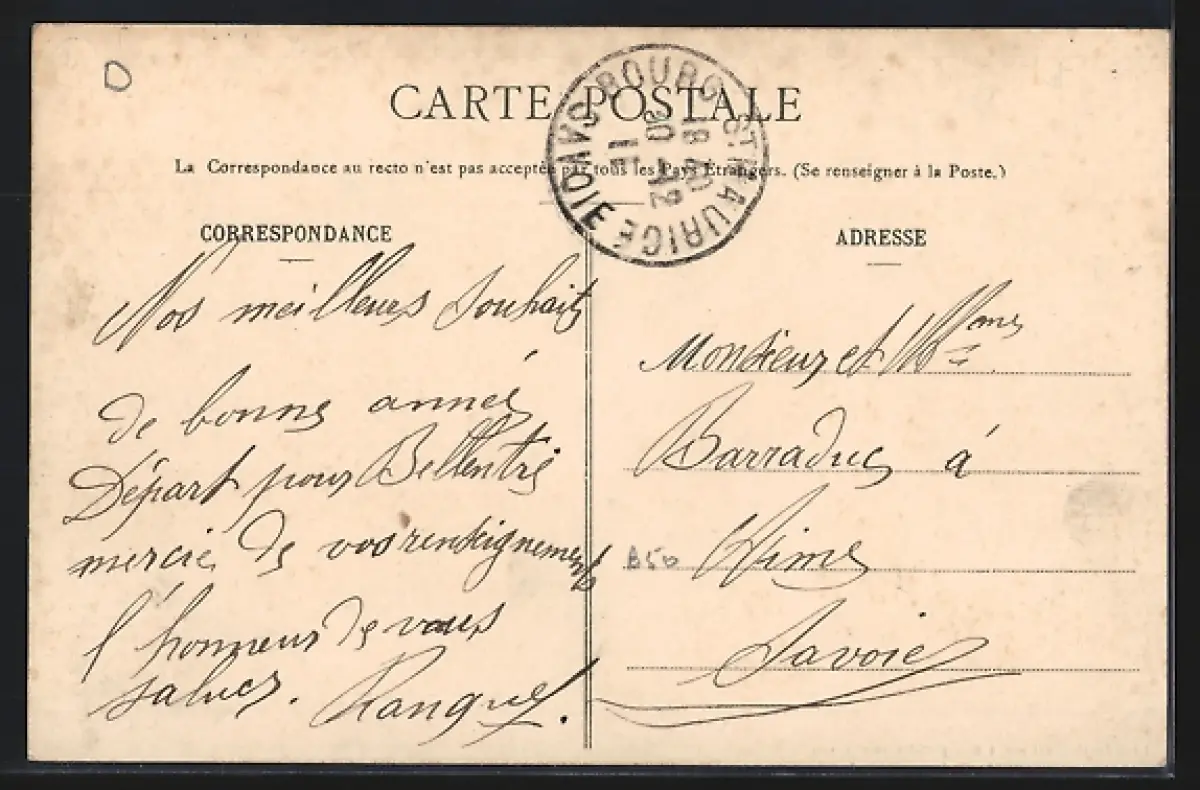 CARTE POSTALE
La Correspondance au recto n'est pas acceptée par tous les Pays Étrangers. (Se renseigner à la Poste.)
BOURG-ST-MAURICE
SAVOIE
18 40
30 -12
11
CORRESPONDANCE
Nos meilleurs Souhaits
de bonne année
Départ pour Bellentre
mercie de vos renseignements
l'honneur de vous
saluer.
ADRESSE
Monsieur et M mes
Barraduc à
B50 Aime
Savoie